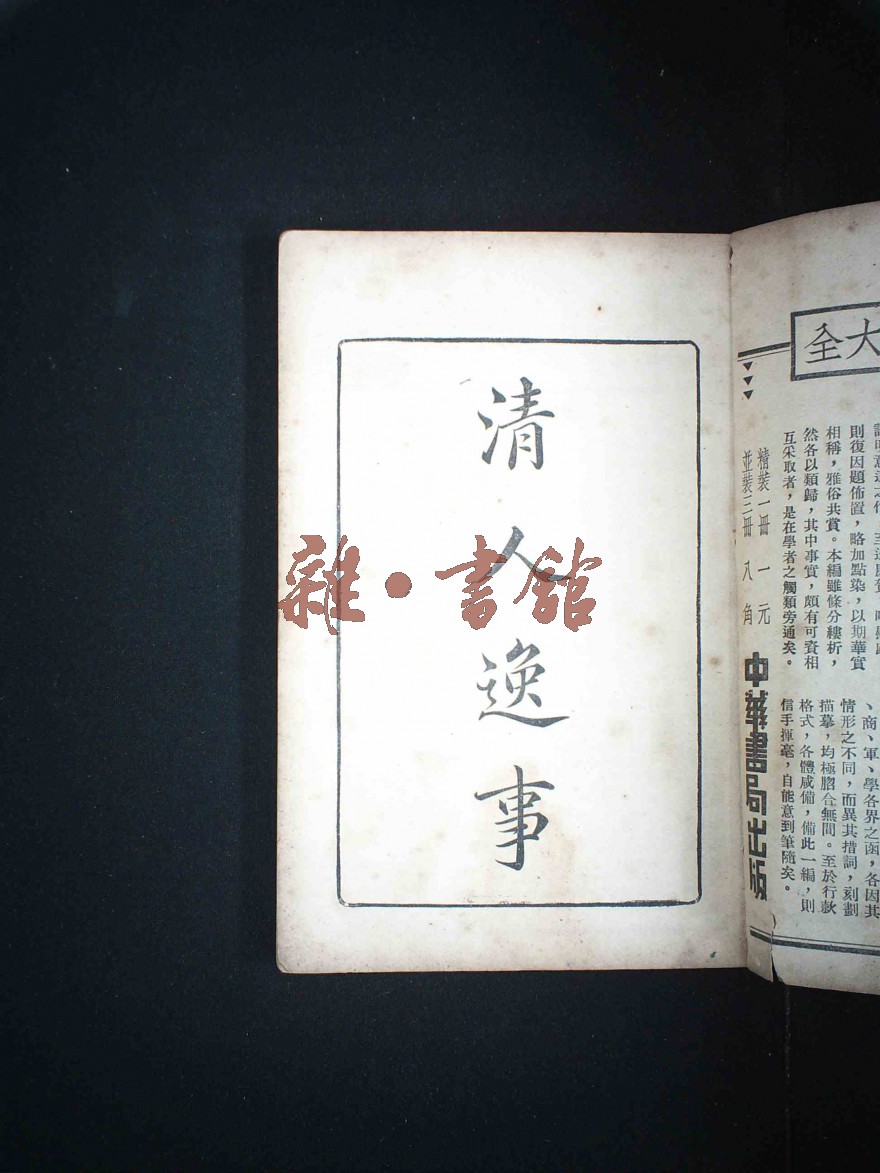 清人逸事
雜·書館
大全
則復因題佈置，略加點染，以期華實
相稱，雅俗共賞。本編雖條分縷析，
然各以類歸，其中事實，頗有可資相
互采取者，是在學者之觸類旁通矣。
、商、軍、學各界之函，各因其
情形之不同，而異其措詞，刻劃
描摹，均極脗合無間。至於行款
格式，各體咸備，備此一編，則
信手揮毫，自能意到筆隨矣。
精裝一冊 一元
並裝三冊 八角
中華書局出版